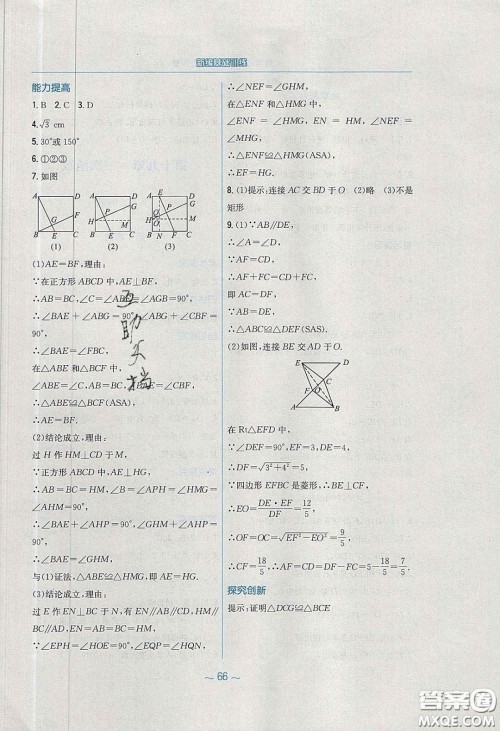 能力提高
1. B  2. C  3. D
4. √3 cm
5. 30°或150°
6. ①②③
7. 如图
(1) (2) (3)
(1)AE=BF,理由:
∵在正方形ABCD中,AE⊥BF,
∴AB=BC,∠C=∠ABC=∠AGB=90°,
∴∠BAE+∠ABG=90°,∠ABG+∠CBF=90°,
∴∠BAE=∠FBC,
在△ABE和△BCF中,
∠BAE=∠CBF,AB=BC,∠ABC=∠C,
∴△ABE≌△BCF(ASA),
∴AE=BF.
(2)结论成立,理由:
过H作HM⊥CD于M,
∵正方形ABCD中,AE⊥HG,
∴AB=BC=HM,∠ABC=∠APH=∠HMG=∠AHM=90°,
∴∠BAE+∠AHP=90°,∠AHP+∠PHM=90°,
∴∠BAE=∠PHM,
与(1)证法,△ABE≌△HMG,即AE=HG.
(3)结论成立,理由:
过E作EN⊥BC于N,有EN∥AB∥CD,
过H作HM⊥CD于M,有HM∥AD∥BC,
∵∠EPH=∠HOE=90°,∠EQP=∠HQN,
∴∠NEF=∠GHM,
在△ENF和△HMG中,
∠ENF=∠HMG,EN=HM,∠NEF=∠MHG,
∴△ENF≌△HMG(ASA),
∴EF=HG.
8. (1)(提示:连接AC交BD于O) (2)略 (3)不是矩形
9. (1)∵AB∥DE,
∴∠A=∠D,
∵AF=CD,
∴AF+FC=CD+FC,
即AC=DF,
∴△ABC≌△DEF(SAS).
(2)如图,连接BE交AD于O,
在Rt△EFD中,
∵∠DEF=90°,EF=3,DE=4,
∴DF=√(3²+4²)=5,
∵四边形EFBC是菱形,∴BE⊥CF,
∴EO=DE·EF/DF=12/5,
∴OF=OC=√(EF²−EO²)=9/5,
∴CF=18/5,∴AF=CD=DF−CF=5−18/5=7/5.
探究创新
提示:证明△DCG≌△BCE
～66～
答案圈
MXQE.COM